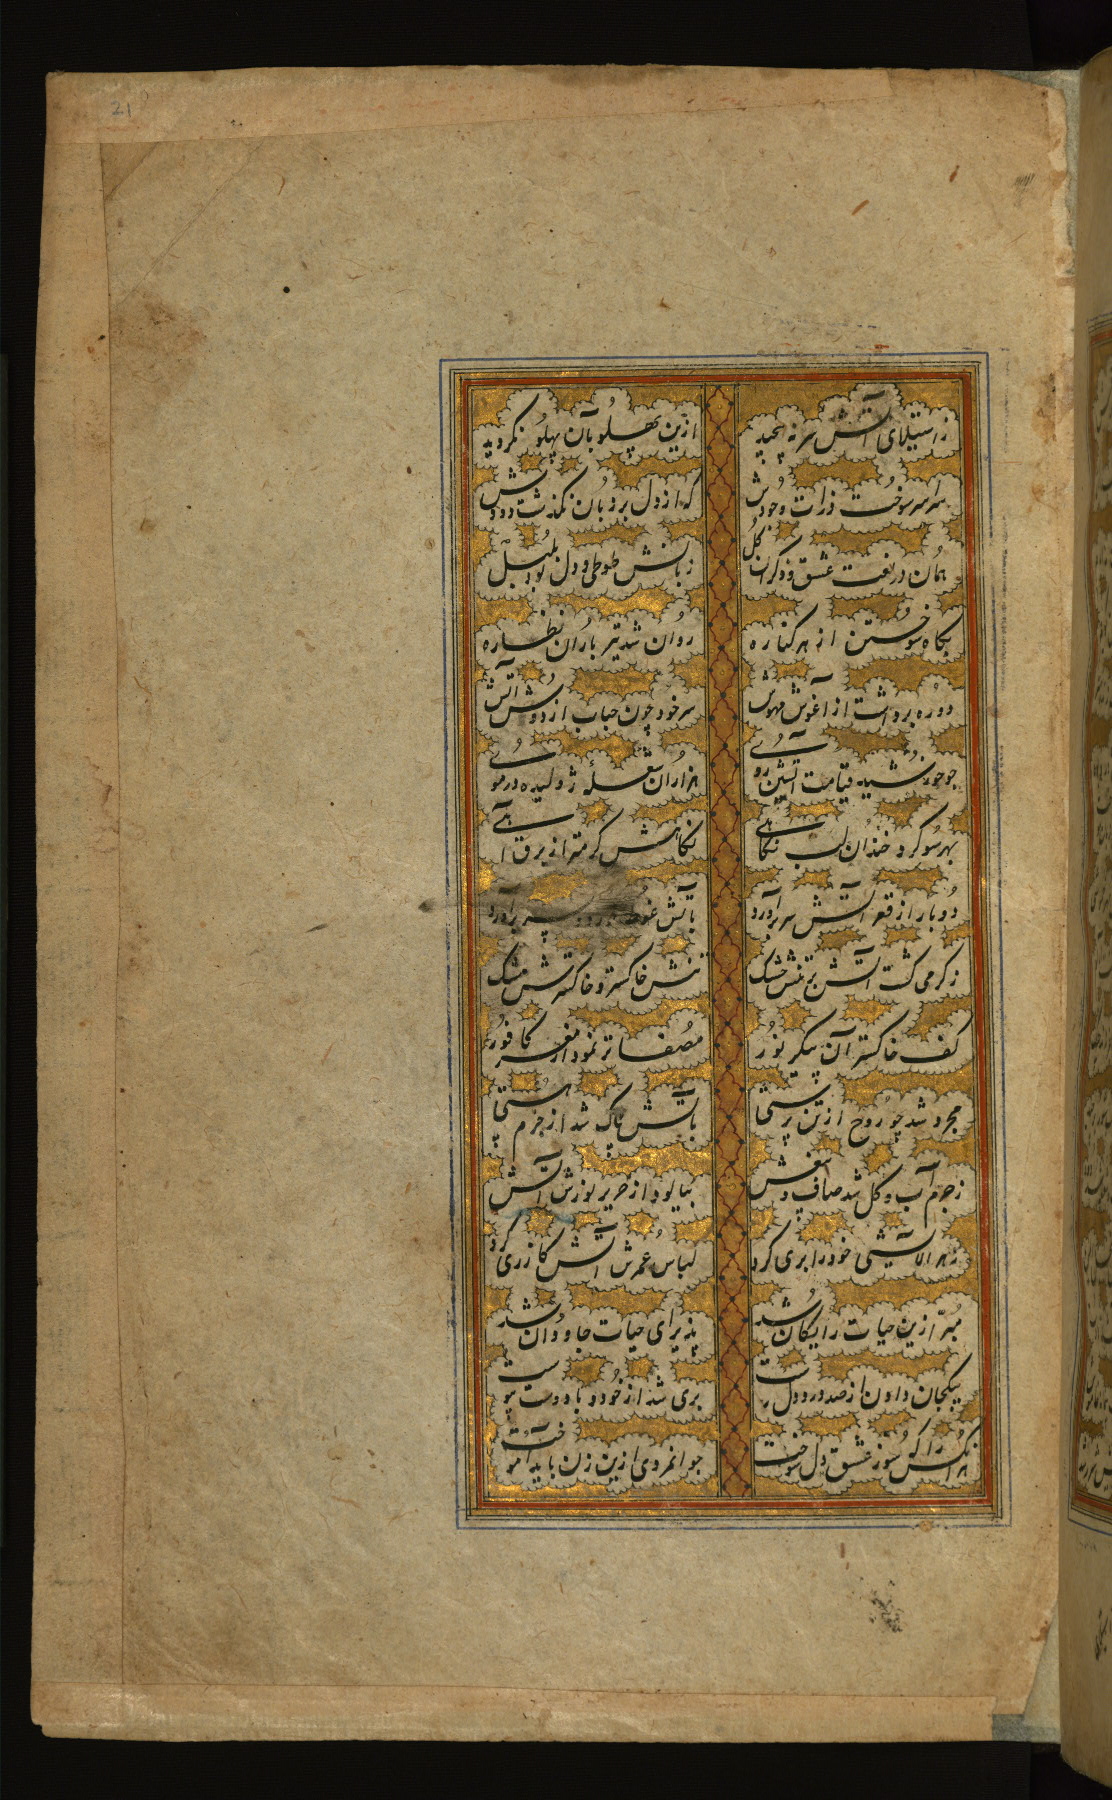 21
ز استیلای آتش سر نه پیچید ازین پهلو بآن پهلو نگردید
سراسر سوخت ذرات وجودش که از دل بر زبان نگذشت دودش
همان در نعت عشق و ذکر آن گل زبانش طوطی و دل بود بلبل
بگاه سوختن از هر کناره روان شد تیر باران نظاره
دو ره برداشت از آغوش مهوش سر خود چون حباب از دوش آتش
چو خورشید قیامت آتشین روی هزاران شعله ژولیده در موی
بهر سو کرد خندان لب نگاهی نگاهش گرمتر از برق آهی
دو بار از قعر آتش سر برآورد بآتش غوطه خورد و سر برآورد
ز گرمی گشت آتش بر تنش خشک تنش خاکستر و خاکسترش مشک
کف خاکستر آن پیکر نور مصفاتر نمود از مغز کافور
مجرد شد چو روح از تن پرستی بآتش پاک شد از جرم هستی
ز جرم آب و گل شد صاف و بیغش بپالود از حریر نوزش آتش
ز هر آلایشی خود را بری کرد لباس عمرش آتش گازری کرد
مبرا زین حیات رایگان شد پذیرای حیات جاودان شد
بیکجان دادن از صد درد دل رست بری شد از خود و با دوست پیوست
هر آنکس را که سوز عشق دل سوخت جوانمردی ازین زن باید آموخت